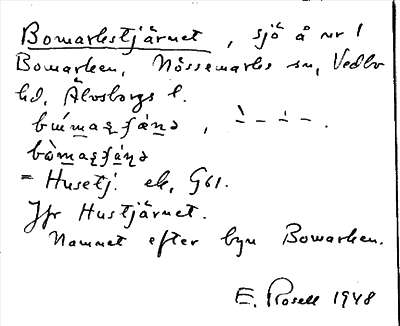 Bomarkstjärnet, sjö å nr 1
Bomarken, Nössemarks sn, Vedbo
hd, Älvsborgs l.
= Husetj. ek, G61.
Jfr Hustjärnet.
Namnet efter byn Bomarken.
E. Rosell 1948